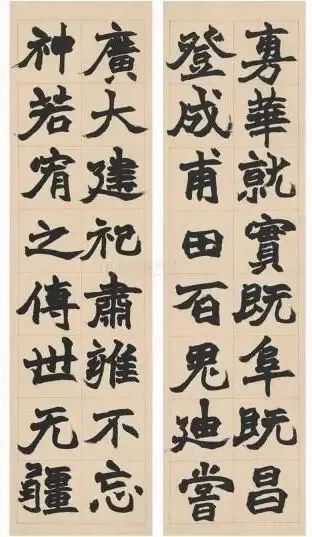 旉華就實既阜既昌
登成甫田百鬼迪嘗
廣大建祀肅雍不忘
神若宥之傳世无疆